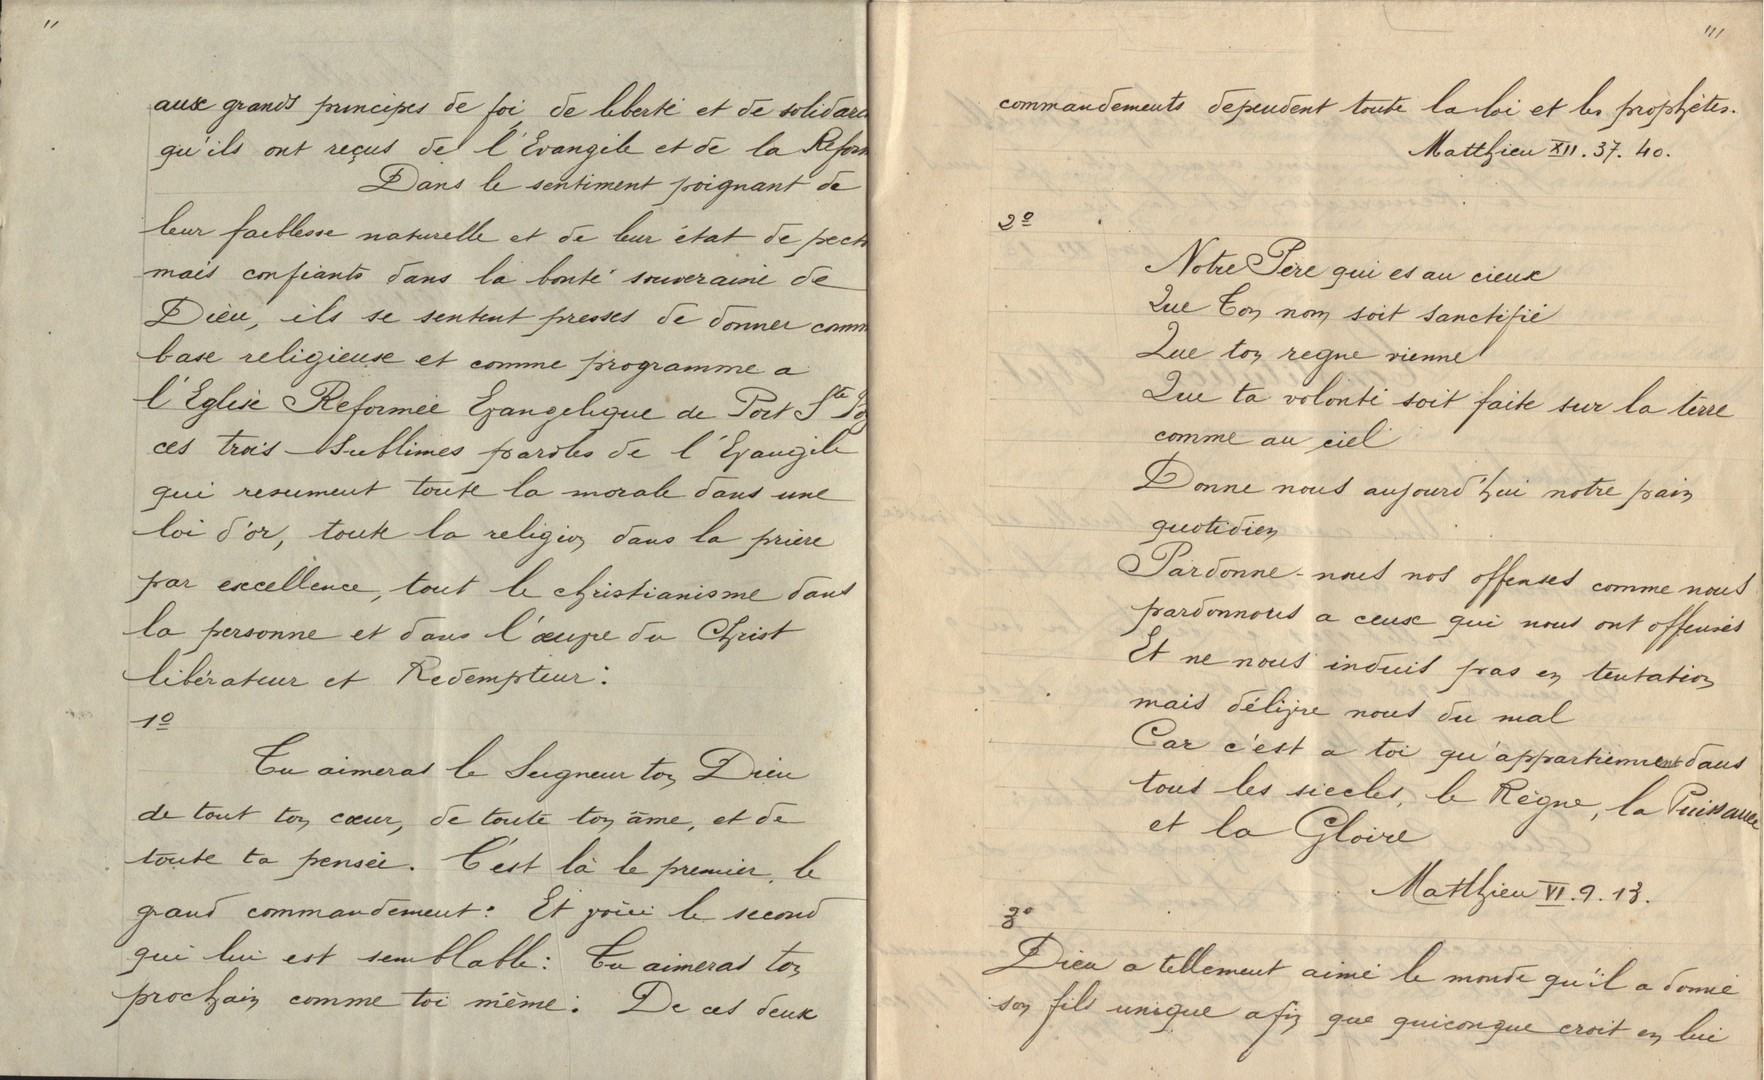 "
aux grands principes de foi, de liberté et de solidar
qu'ils ont reçus de l'Evangile et de la Refor
Dans le sentiment poignant de
leur faiblesse naturelle et de leur état de pech
mais confiants dans la bonté souveraine de
Dieu, ils se sentent pressés de donner comm
base religieuse et comme programme a
l'Eglise Reformée Evangelique de Port Ste Foy
ces trois sublimes paroles de l'Evangile
qui resument toute la morale dans une
loi d'or, toute la religion dans la prière
par excellence, tout le christianisme dans
la personne et dans l'œuvre du Christ
libérateur et Redempteur :
1º
Tu aimeras le Seigneur ton Dieu
de tout ton cœur, de toute ton âme, et de
toute ta pensée. C'est là le premier, le
grand commandement : Et voici le second
qui lui est semblable : Tu aimeras ton
prochain comme toi même : De ces deux
"'
commandements dependent toute la loi et les prophètes.
Matthieu XII. 37. 40.
2º
Notre Père qui es au cieux
Que Ton nom soit sanctifié
Que ton regne vienne
Que ta volonté soit faite sur la terre
comme au ciel
Donne nous aujourd'hui notre pain
quotidien
Pardonne-nous nos offenses comme nous
pardonnons a ceux qui nous ont offensés
Et ne nous induis pas en tentation
mais délivre nous du mal
Car c'est a toi qu'appartiennent dans
tous les siecles, le Règne, la Puissance
et la Gloire
Matthieu VI. 9. 13.
3º
Dieu a tellement aimé le monde qu'il a donné
son fils unique afin que quiconque croit en lui